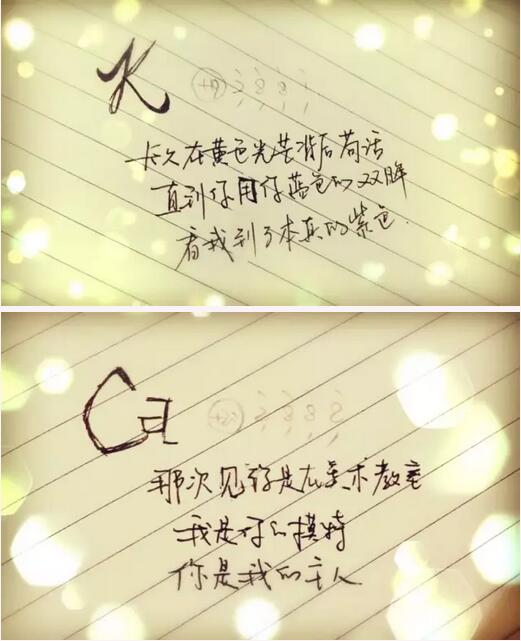 K +19 2 8 8 1
长久在黄色光芒背后苟活
直到你用你蓝色的双眸
看我到了本真的紫色.
Ca +20 2 8 8 2
那次见你是在美术教室
我是你的模特
你是我的主人